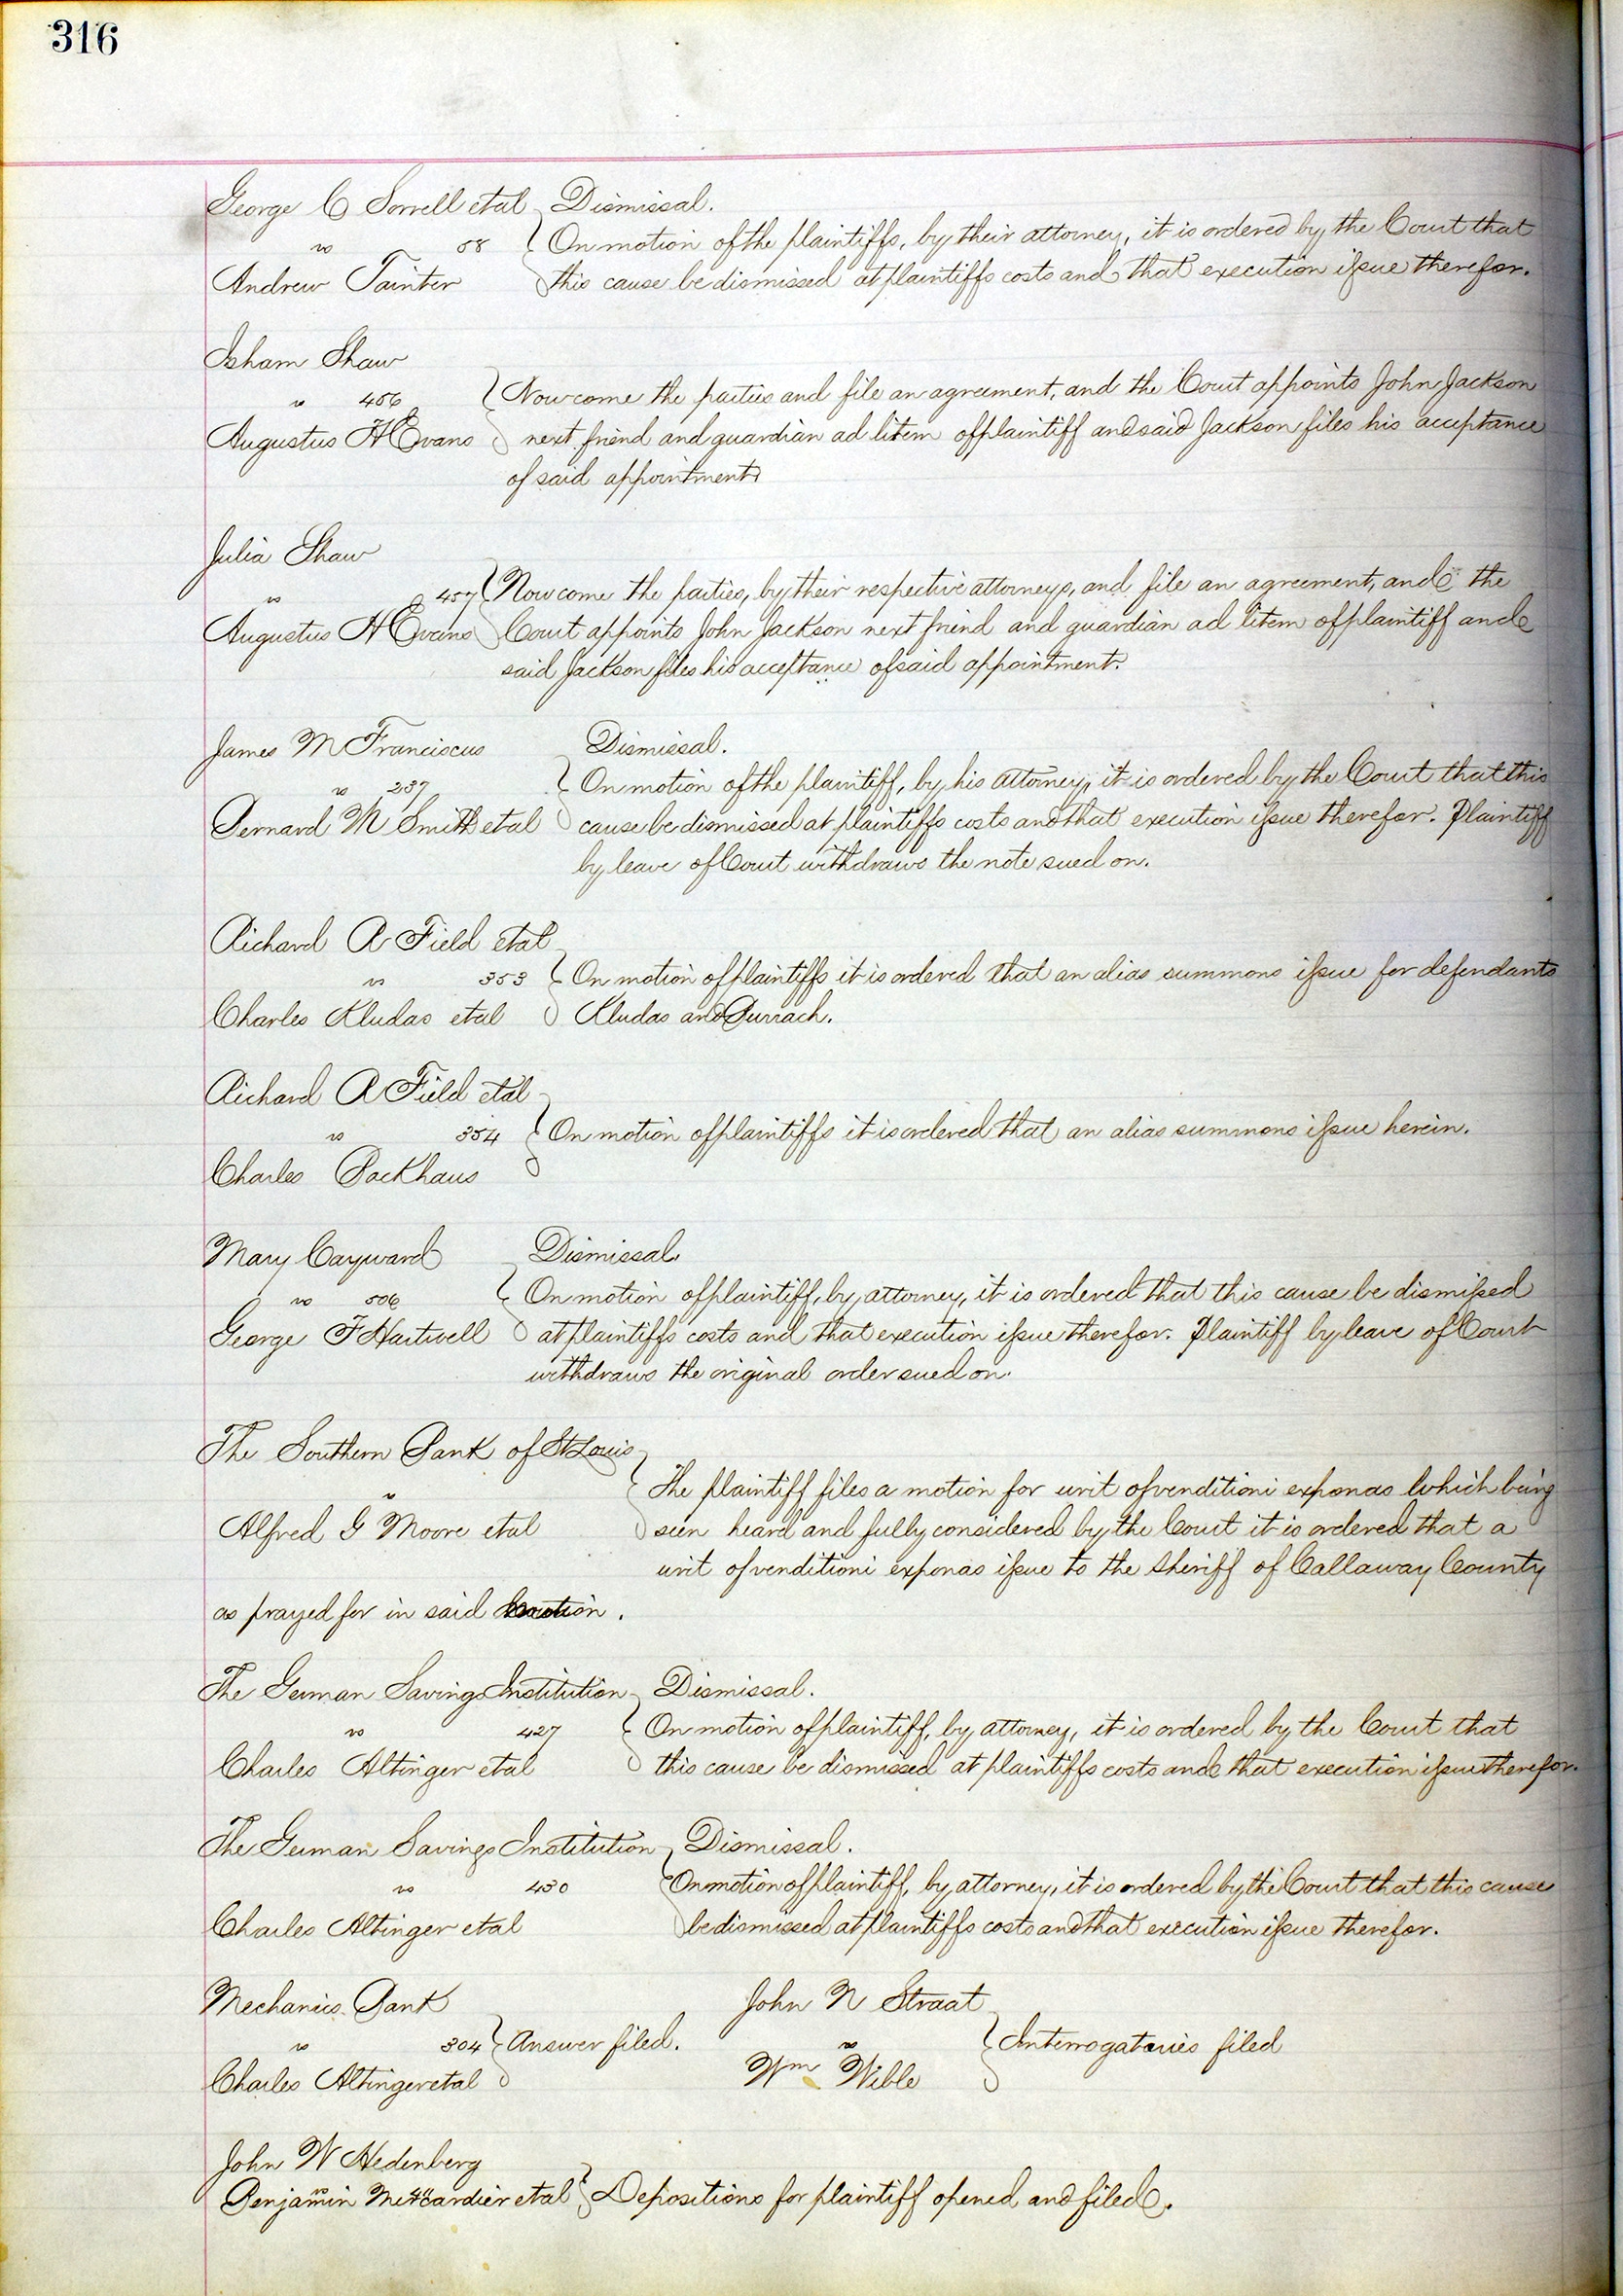 316
George C Sorrell et al Dismissal.
vs 58 On motion of the plaintiffs, by their attorney, it is ordered by the Court that
Andrew Tainter this cause be dismissed at plaintiffs costs and that execution issue therefor.
Isham Shaw
vs 456 Now come the parties and file an agreement, and the Court appoints John Jackson
Augustus H Evans next friend and guardian ad litem of plaintiff and said Jackson files his acceptance
of said appointment
Julia Shaw
vs 457 Now come the parties, by their respective attorneys, and file an agreement, and the
Augustus H Evans Court appoints John Jackson next friend and guardian ad litem of plaintiff and
said Jackson files his acceptance of said appointment.
James M Franciscus Dismissal.
vs 237 On motion of the plaintiff, by his attorney, it is ordered by the Court that this
Bernard M Smith et al cause be dismissed at plaintiffs costs and that execution issue therefor. Plaintiff
by leave of Court withdraws the note sued on.
Richard A Field et al
vs 353 On motion of plaintiffs it is ordered that an alias summons issue for defendants
Charles Kludas et al Kludas and
Richard A Field et al
vs 354 On motion of plaintiffs it is ordered that an alias summons issue herein.
Charles Backhaus
Mary Cayward Dismissal
vs 506 On motion of plaintiff, by attorney, it is ordered that this cause be dismissed
George F Hartwell at plaintiffs costs and that execution issue therefor. Plaintiff by leave of Court
withdraws the original order sued on.
The Southern Bank of St Louis
vs The plaintiff files a motion for writ of venditioni exponas which being
Alfred G Moore et al seen heard and fully considered by the Court it is ordered that a
writ of venditioni exponas issue to the Sheriff of Callaway County
as prayed for in said motion.
The German Savings Institution Dismissal.
vs 427 On motion of plaintiff, by attorney, it is ordered by the Court that
Charles Altinger et al this cause be dismissed at plaintiffs costs and that execution issue therefor.
The German Savings Institution Dismissal.
vs 430 On motion of plaintiff, by attorney, it is ordered by the Court that this cause
Charles Altinger et al be dismissed at plaintiffs costs and that execution issue therefor.
Mechanics Bank
vs 304 Answer filed.
Charles Altinger et al
John N Straat
vs Interrogatories filed
Wm Wible
John W Hedenberg
vs
Benjamin et al Depositions for plaintiff opened and filed.